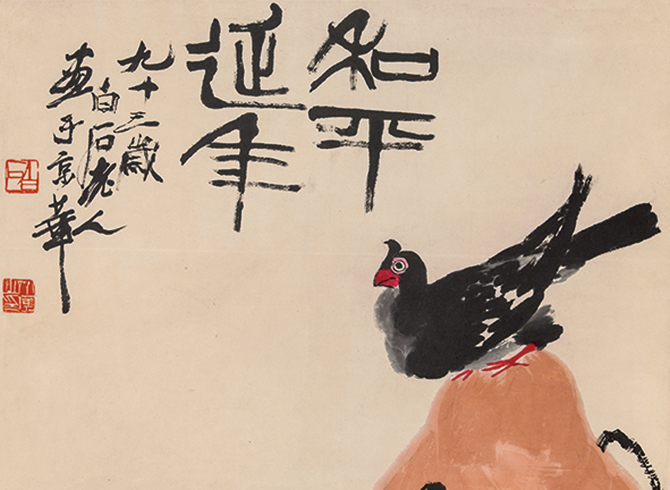 和平
延年
九十三歲
白石老人
畫于京華